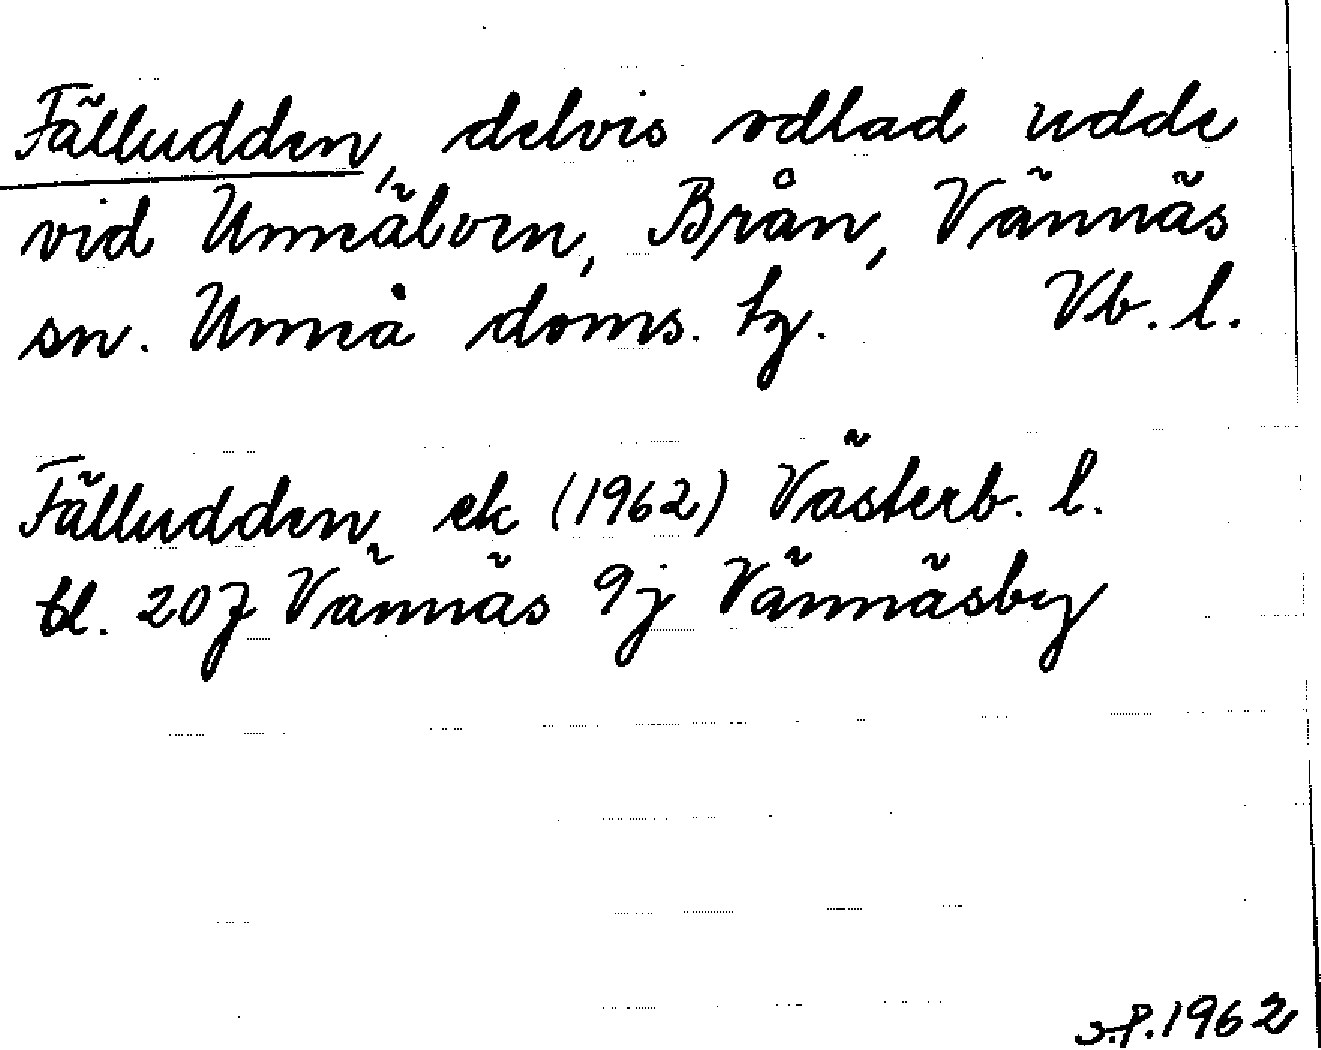 Fälludden, delvis odlad udde
vid Umeälven, Brån, Vännäs
sn. Umeå doms. hg. Vb. l.
Fälludden ek (1962) Västerb. l.
bl. 20J Vännäs 9j Vännäsby
1962